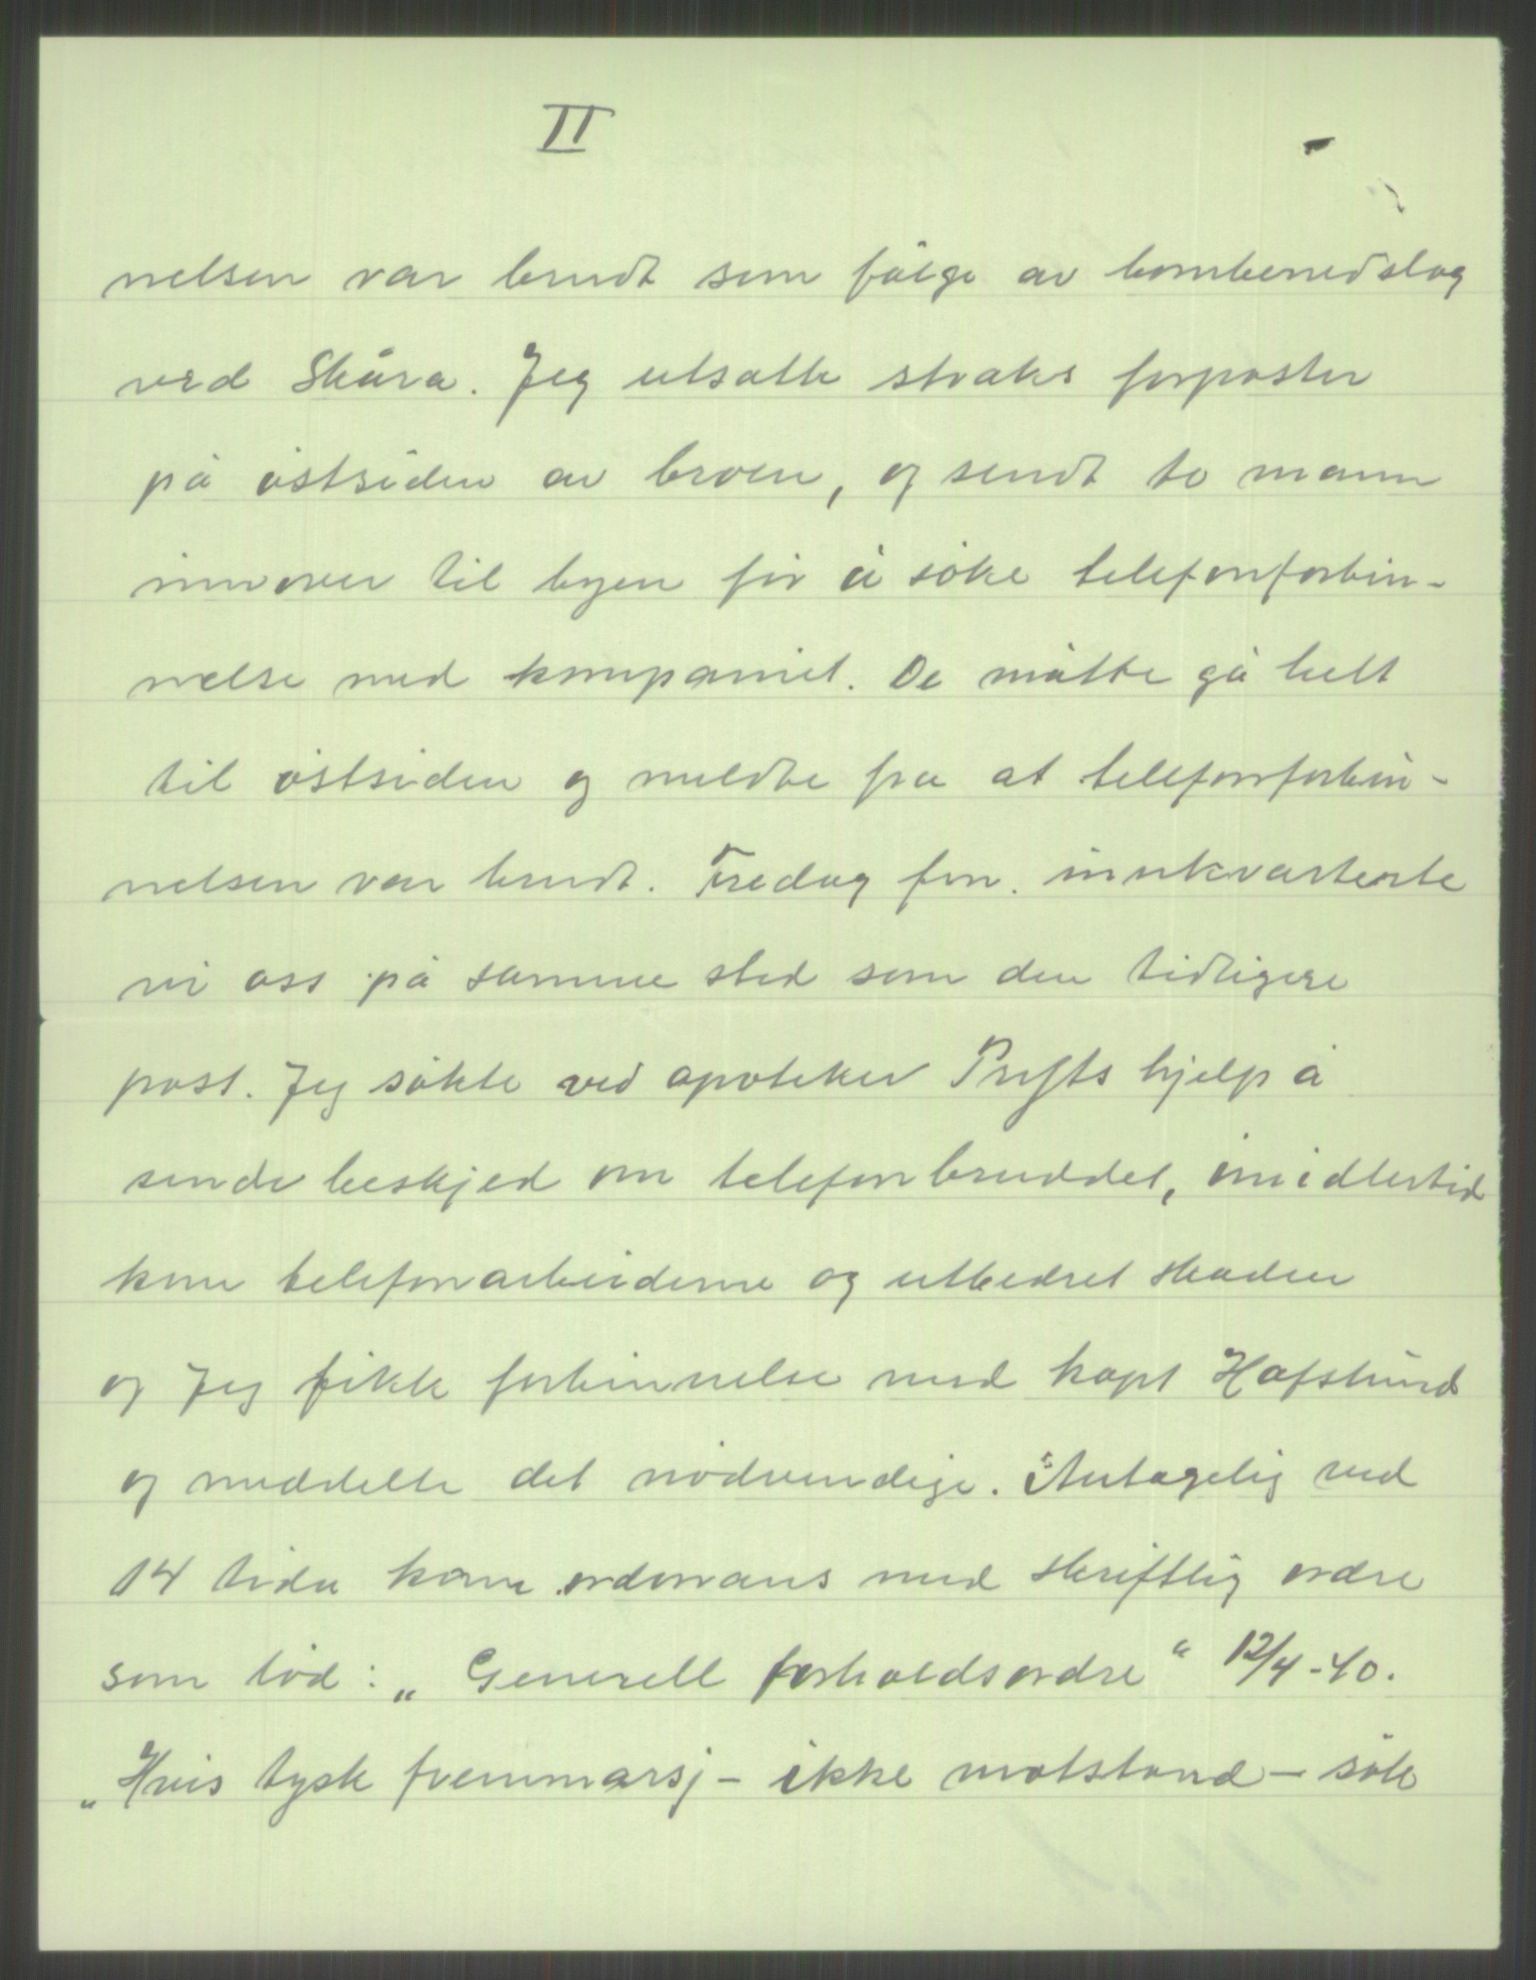 II
nelsen var brudt som følge av bombenedslag
ved Skåra. Jeg utsatte straks forposter
på østsiden av broen, og sendt to mann
innover til byen for å søke telefonforbin-
nelse med kompaniet. De måtte gå helt
til østsiden og meldte fra at telefonforbin-
nelsen var brudt. Fredag fm. innkvarterte
vi oss på samme sted som den tidligere
post. Jeg søkte ved apoteker hjelp å
sende beskjed om telefonbruddet, imidlertid
kom telefonarbeiderne og utbedret skaden
og Jeg fikk forbinnelse med kapt Hafslund
og meddelte det nødvendige. Antagelig ved
14 tiden kom ordonans med skriftlig ordre
som lød: „Generell forholdsordre" 12/4-40.
„Hvis tysk fremmarsj - ikke motstand - søk